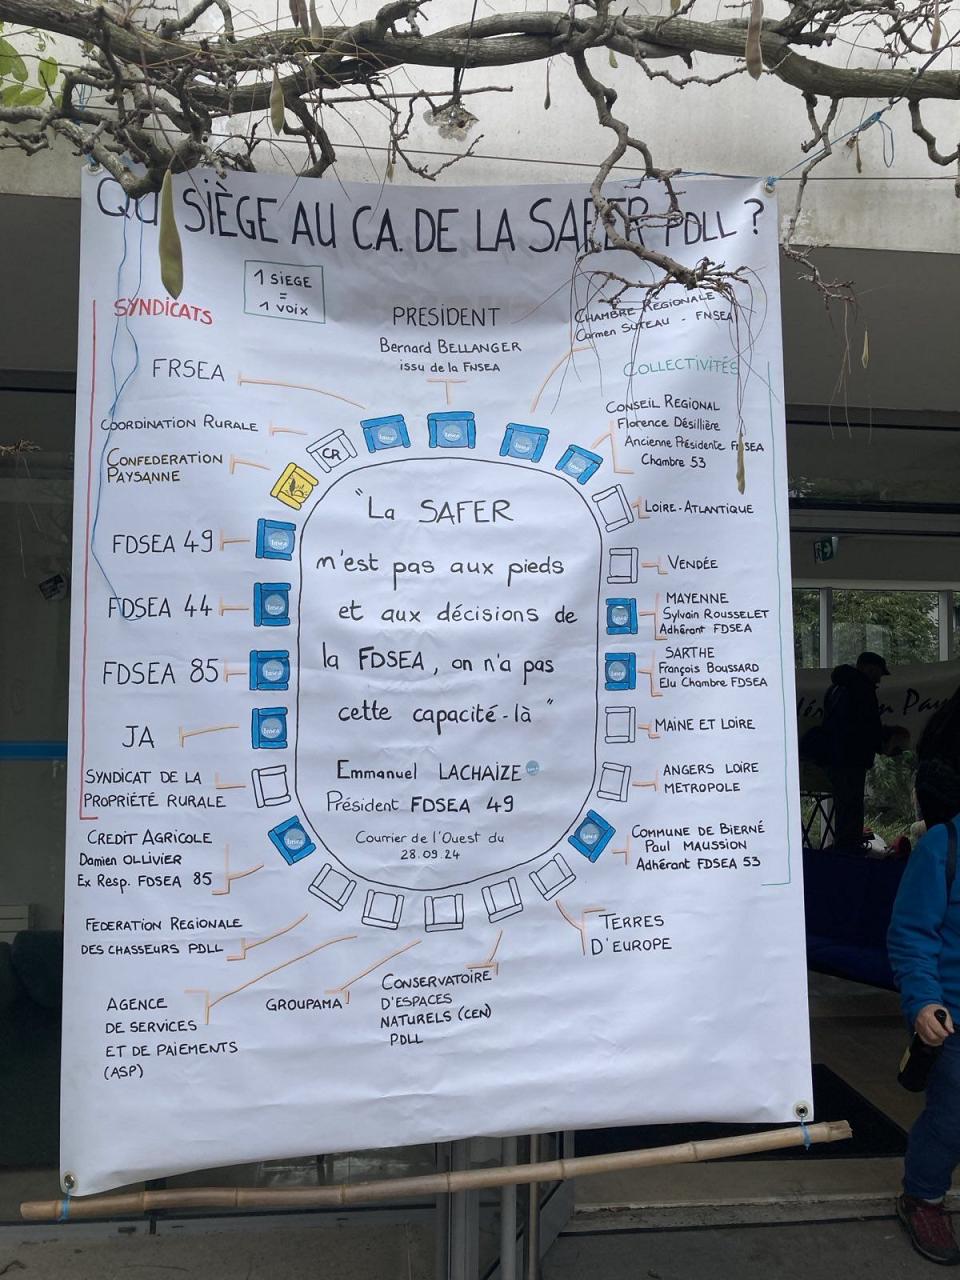 QUI SIÈGE AU C.A. DE LA SAFER PDLL ?
1 SIEGE
=
1 VOIX
SYNDICATS
PRESIDENT
Bernard BELLANGER
issu de la FNSEA
CHAMBRE REGIONALE
Carmen SUTEAU - FNSEA
COLLECTIVITÉS
FRSEA
COORDINATION RURALE
CONFEDERATION
PAYSANNE
FDSEA 49
FDSEA 44
FDSEA 85
JA
SYNDICAT DE LA
PROPRIÉTÉ RURALE
CREDIT AGRICOLE
Damien OLLIVIER
Ex Resp. FDSEA 85
FEDERATION REGIONALE
DES CHASSEURS PDLL
AGENCE
DE SERVICES
ET DE PAIEMENTS
(ASP)
GROUPAMA
CONSERVATOIRE
D'ESPACES
NATURELS (CEN)
PDLL
TERRES
D'EUROPE
CONSEIL REGIONAL
Florence Désillière
Ancienne Présidente FNSEA
Chambre 53
LOIRE-ATLANTIQUE
VENDÉE
MAYENNE
Sylvain ROUSSELET
Adhérant FDSEA
SARTHE
François BOUSSARD
Elu Chambre FDSEA
MAINE ET LOIRE
ANGERS LOIRE
METROPOLE
COMMUNE DE BIERNÉ
Paul MAUSSION
Adhérant FDSEA 53
CR
"La SAFER
n'est pas aux pieds
et aux décisions de
la FDSEA, on n'a pas
cette capacité-là"
Emmanuel LACHAIZE
Président FDSEA 49
Courrier de l'Ouest du
28.09.24